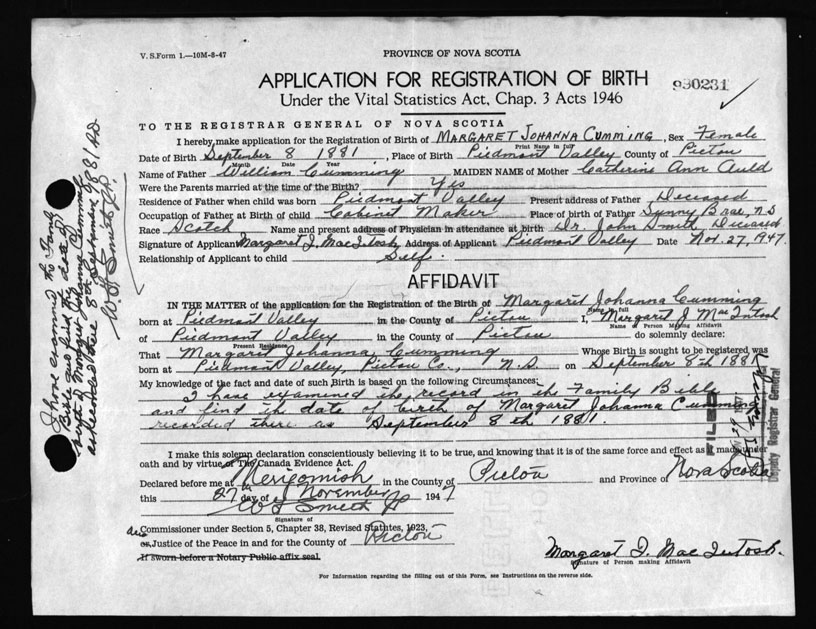 V. S. Form 1.—10M-8-47
PROVINCE OF NOVA SCOTIA
APPLICATION FOR REGISTRATION OF BIRTH
Under the Vital Statistics Act, Chap. 3 Acts 1946
930231
TO THE REGISTRAR GENERAL OF NOVA SCOTIA
I hereby make application for the Registration of Birth of MARGARET JOHANNA CUMMING, Sex Female
Print Name in full
Date of Birth September 8 1881, Place of Birth Piedmont Valley County of Pictou
Month Date Year
Name of Father William Cumming MAIDEN NAME of Mother Catherine Ann Auld
Were the Parents married at the time of the Birth? Yes
Residence of Father when child was born Piedmont Valley Present address of Father Deceased
Occupation of Father at Birth of child Cabinet Maker Place of birth of Father Sunny Brae, N.S
Race Scotch Name and present address of Physician in attendance at birth Dr. John Smith, Deceased
Signature of Applicant Margaret J. MacIntosh, Address of Applicant Piedmont Valley Date Nov. 27, 1947.
Relationship of Applicant to child Self.
AFFIDAVIT
IN THE MATTER of the application for the Registration of the Birth of Margaret Johanna Cumming
Name in full
born at Piedmont Valley in the County of Pictou I, Margaret J MacIntosh
Name of Person Making Affidavit
of Piedmont Valley in the County of Pictou do solemnly declare:
Present Residence
That Margaret Johanna Cumming Whose Birth is sought to be registered was
born at Piedmont Valley, Pictou Co., N.S. on September 8th 1881
My knowledge of the fact and date of such Birth is based on the following Circumstances:
I have examined the record in the Family Bible
and find the date of birth of Margaret Johanna Cumming
recorded there as September 8th 1881.
I make this solemn declaration conscientiously believing it to be true, and knowing that it is of the same force and effect as if made under
oath and by virtue of The Canada Evidence Act.
Declared before me at Merigomish in the County of Pictou and Province of Nova Scotia
this 27th day of November 1947
W S Smith JP
Signature of
Commissioner under Section 5, Chapter 38, Revised Statutes, 1923,
or, Justice of the Peace in and for the County of Pictou
If sworn before a Notary Public affix seal.
Margaret J. MacIntosh.
Signature of Person making Affidavit
For Information regarding the filling out of this Form, see Instructions on the reverse side.
I have examined the Family
Bible and find the date of
birth of Margaret Johanna Cumming
as recorded there 8th September 1881 AD
W S Smith J.P.
FILED
Deputy Registrar General